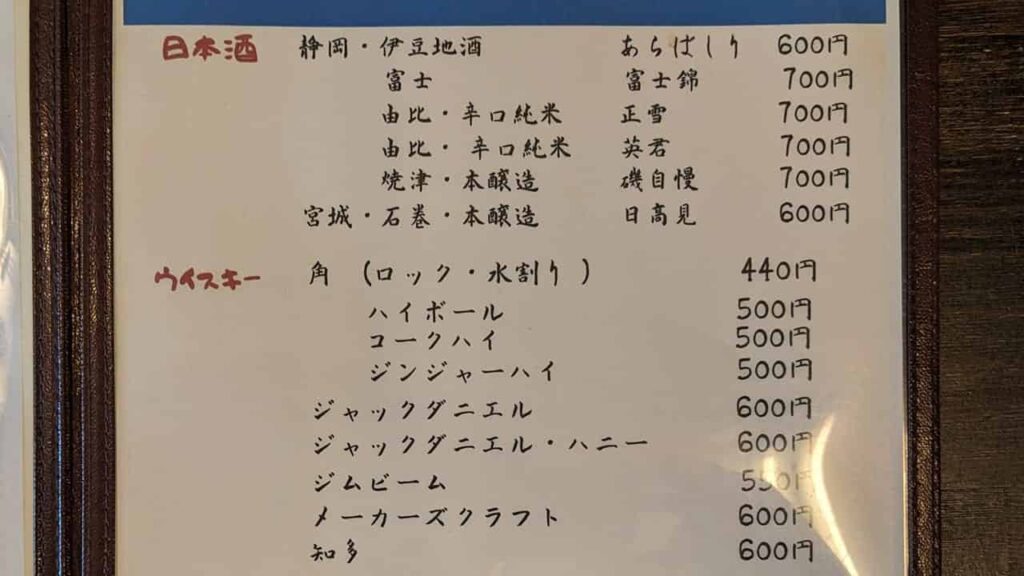 日本酒 静岡・伊豆地酒 あらばしり 600円
富士 富士錦 700円
由比・辛口純米 正雪 700円
由比・辛口純米 英君 700円
焼津・本醸造 磯自慢 700円
宮城・石巻・本醸造 日高見 600円
ウイスキー 角 (ロック・水割り) 440円
ハイボール 500円
コークハイ 500円
ジンジャーハイ 500円
ジャックダニエル 600円
ジャックダニエル・ハニー 600円
ジムビーム 550円
メーカーズクラフト 600円
知多 600円